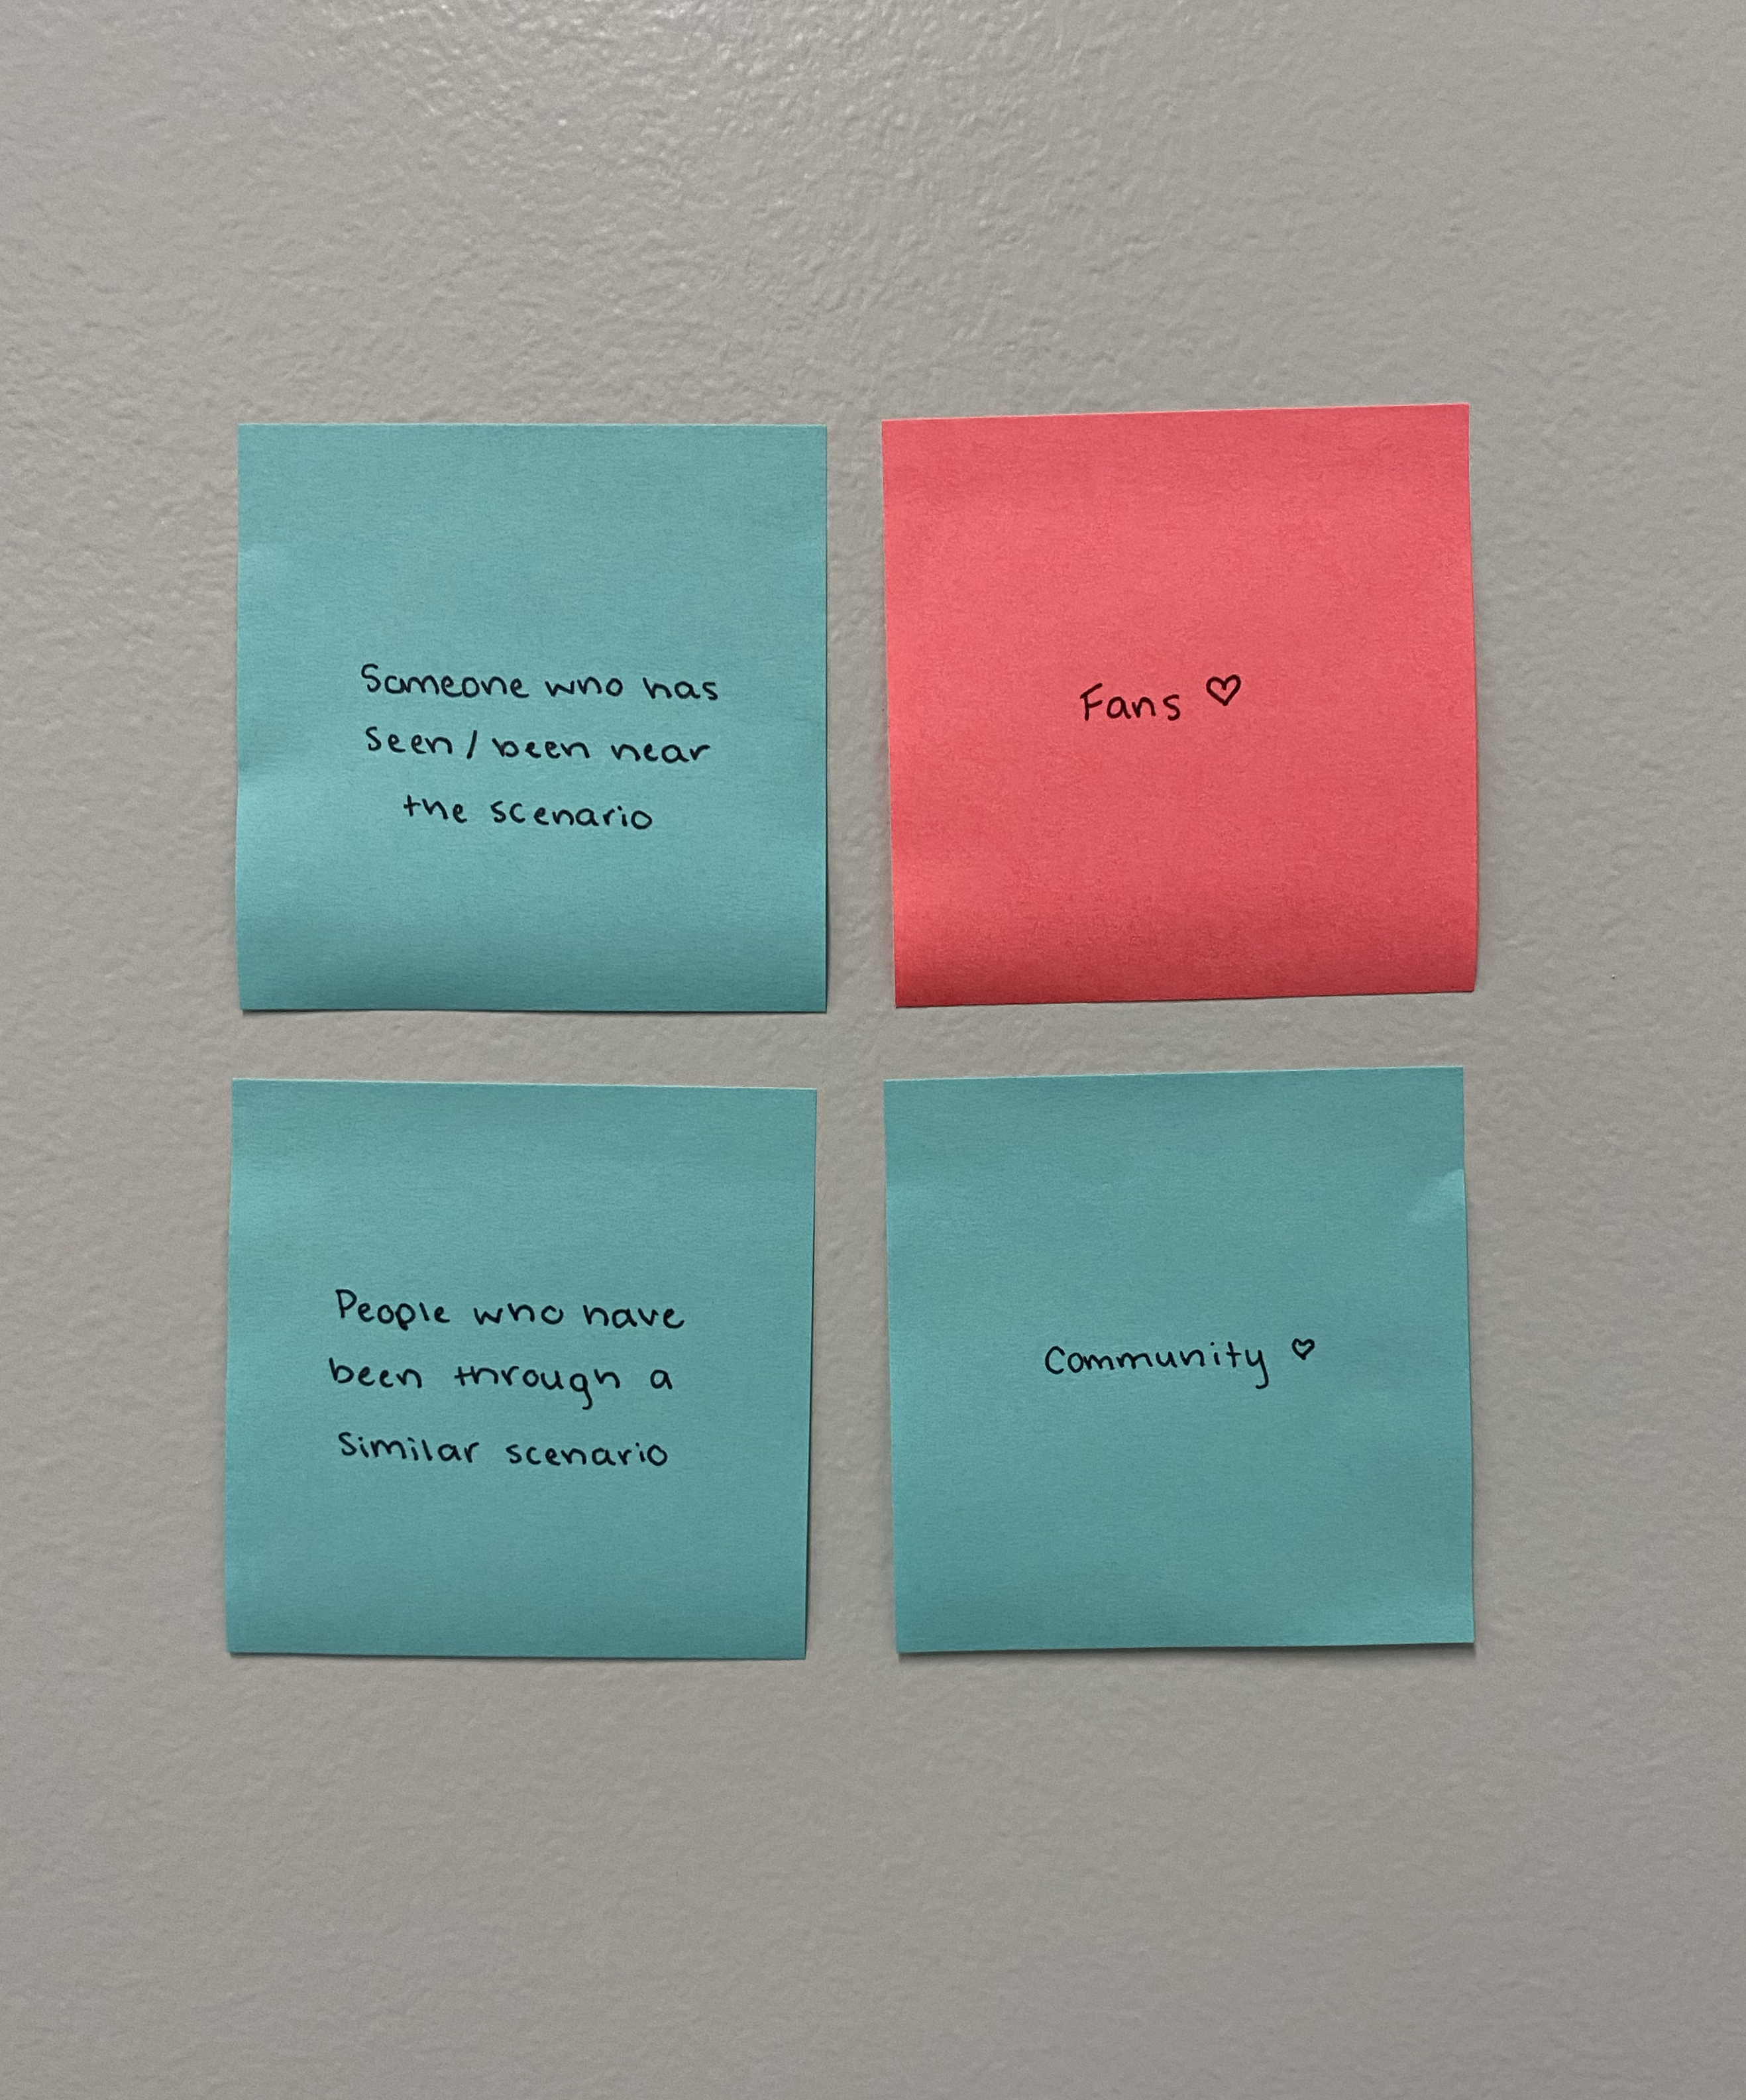 Someone who has
seen / been near
the scenario
Fans ♡
People who have
been through a
similar scenario
Community ♡